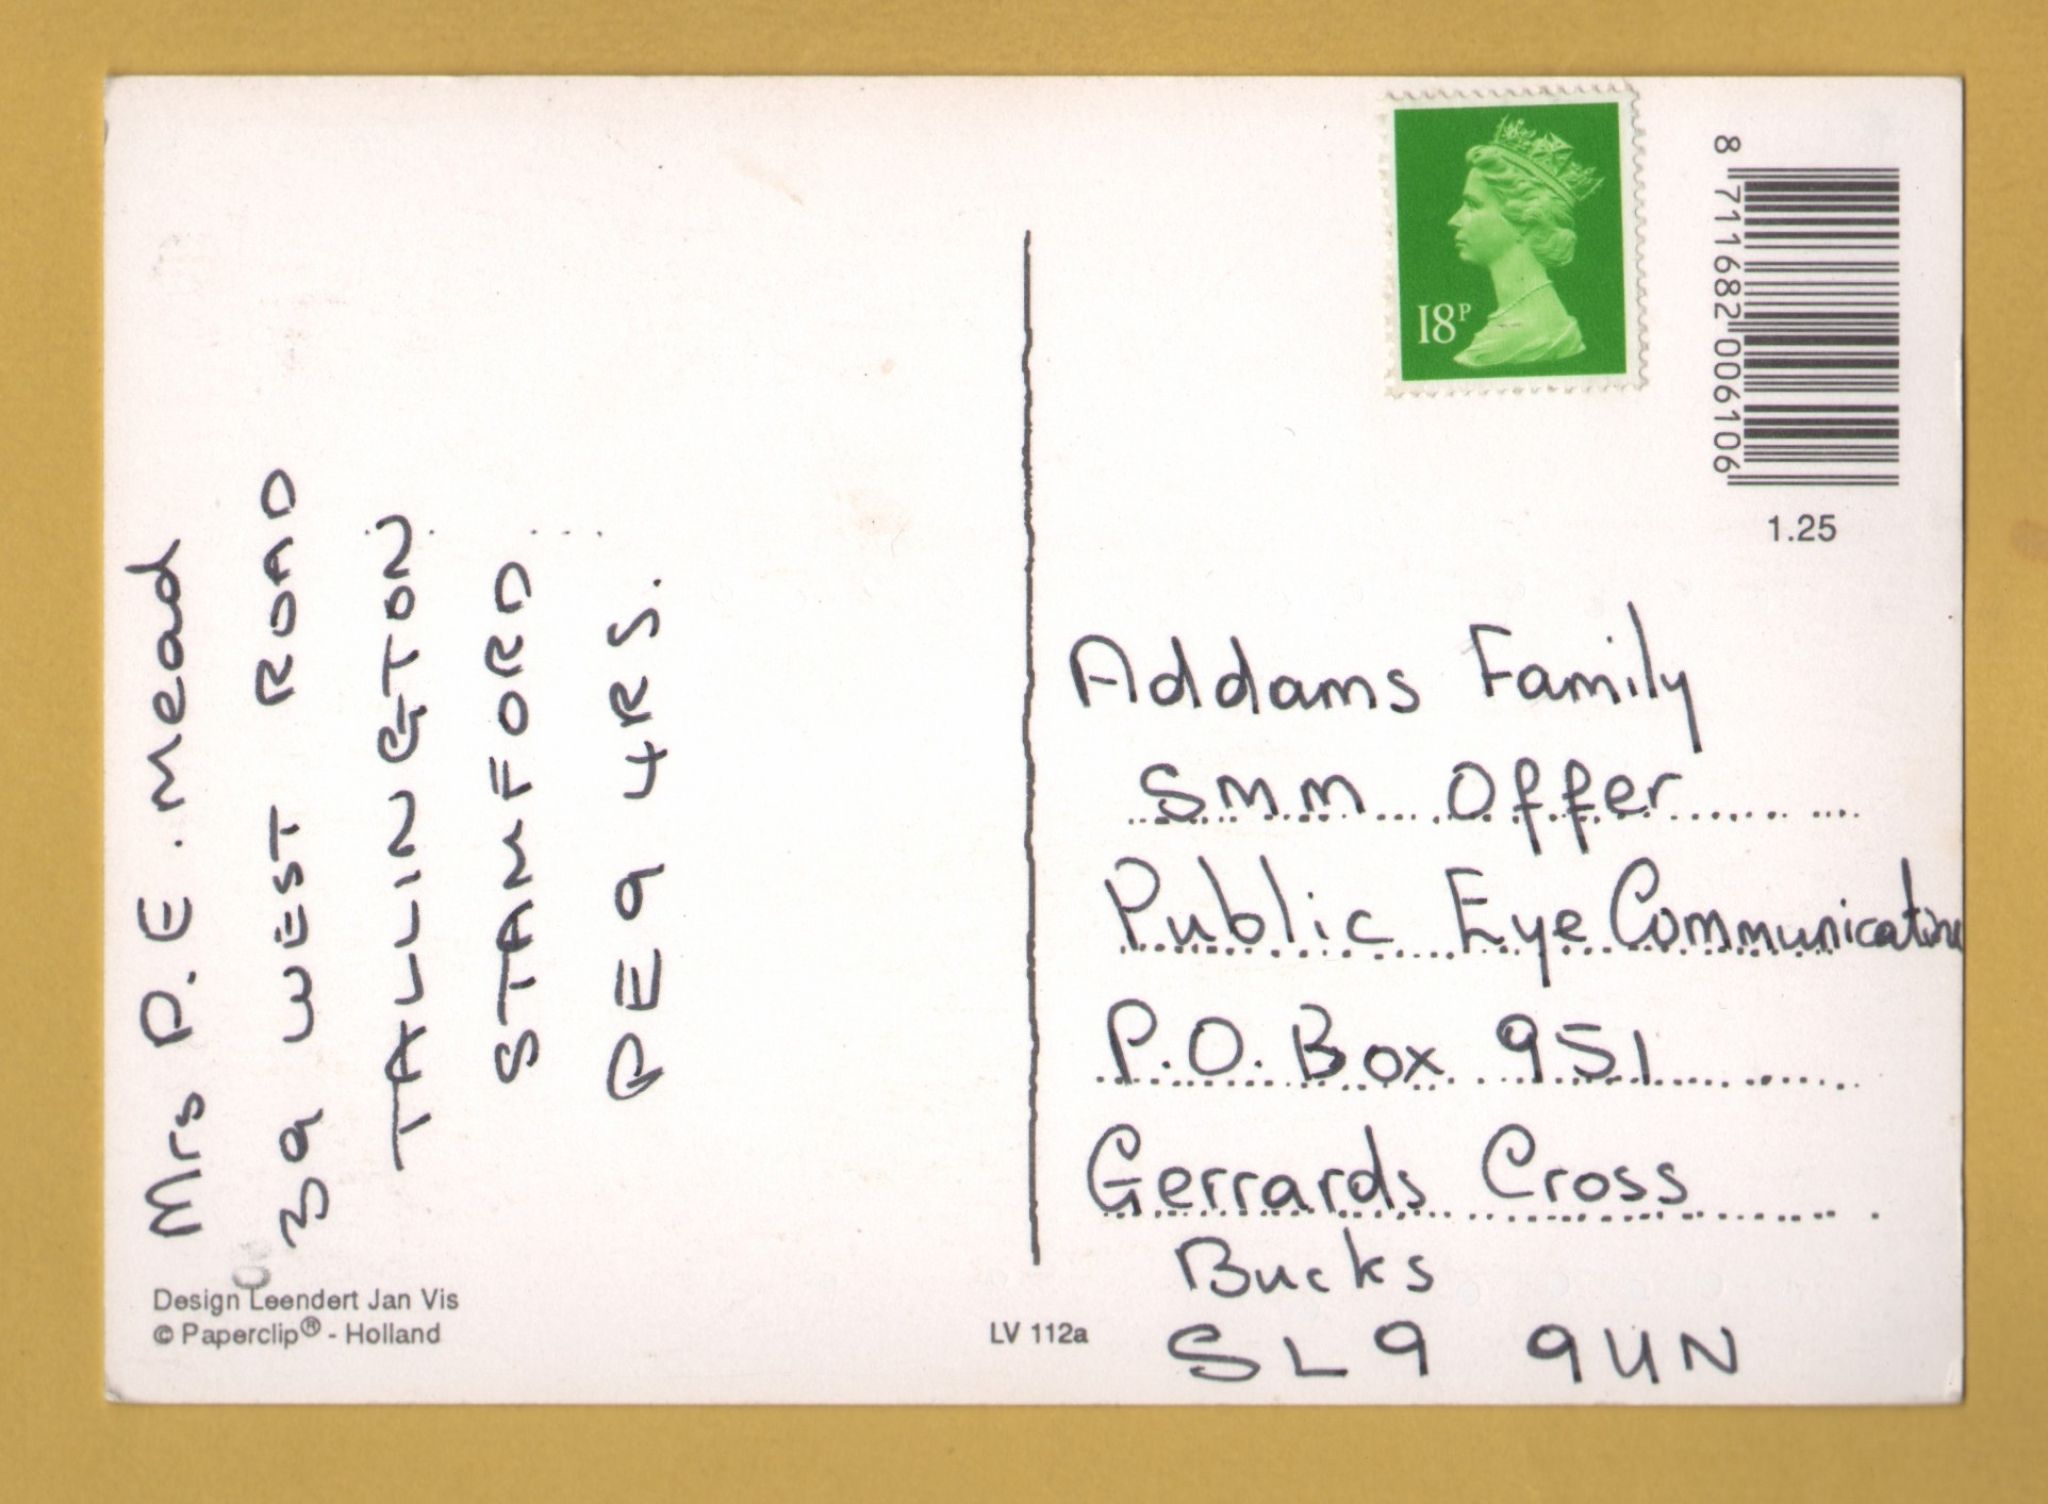 Mrs P.E. Mead
39 WEST ROAD
TALLINGTON
STAMFORD
PE9 4RS.
Design Leendert Jan Vis
© Paperclip® - Holland
LV 112a
18P
8 711682 006106
1.25
Addams Family
Smm Offer
Public Eye Communications
P.O. Box 951
Gerrards Cross
Bucks
SL9 9UN